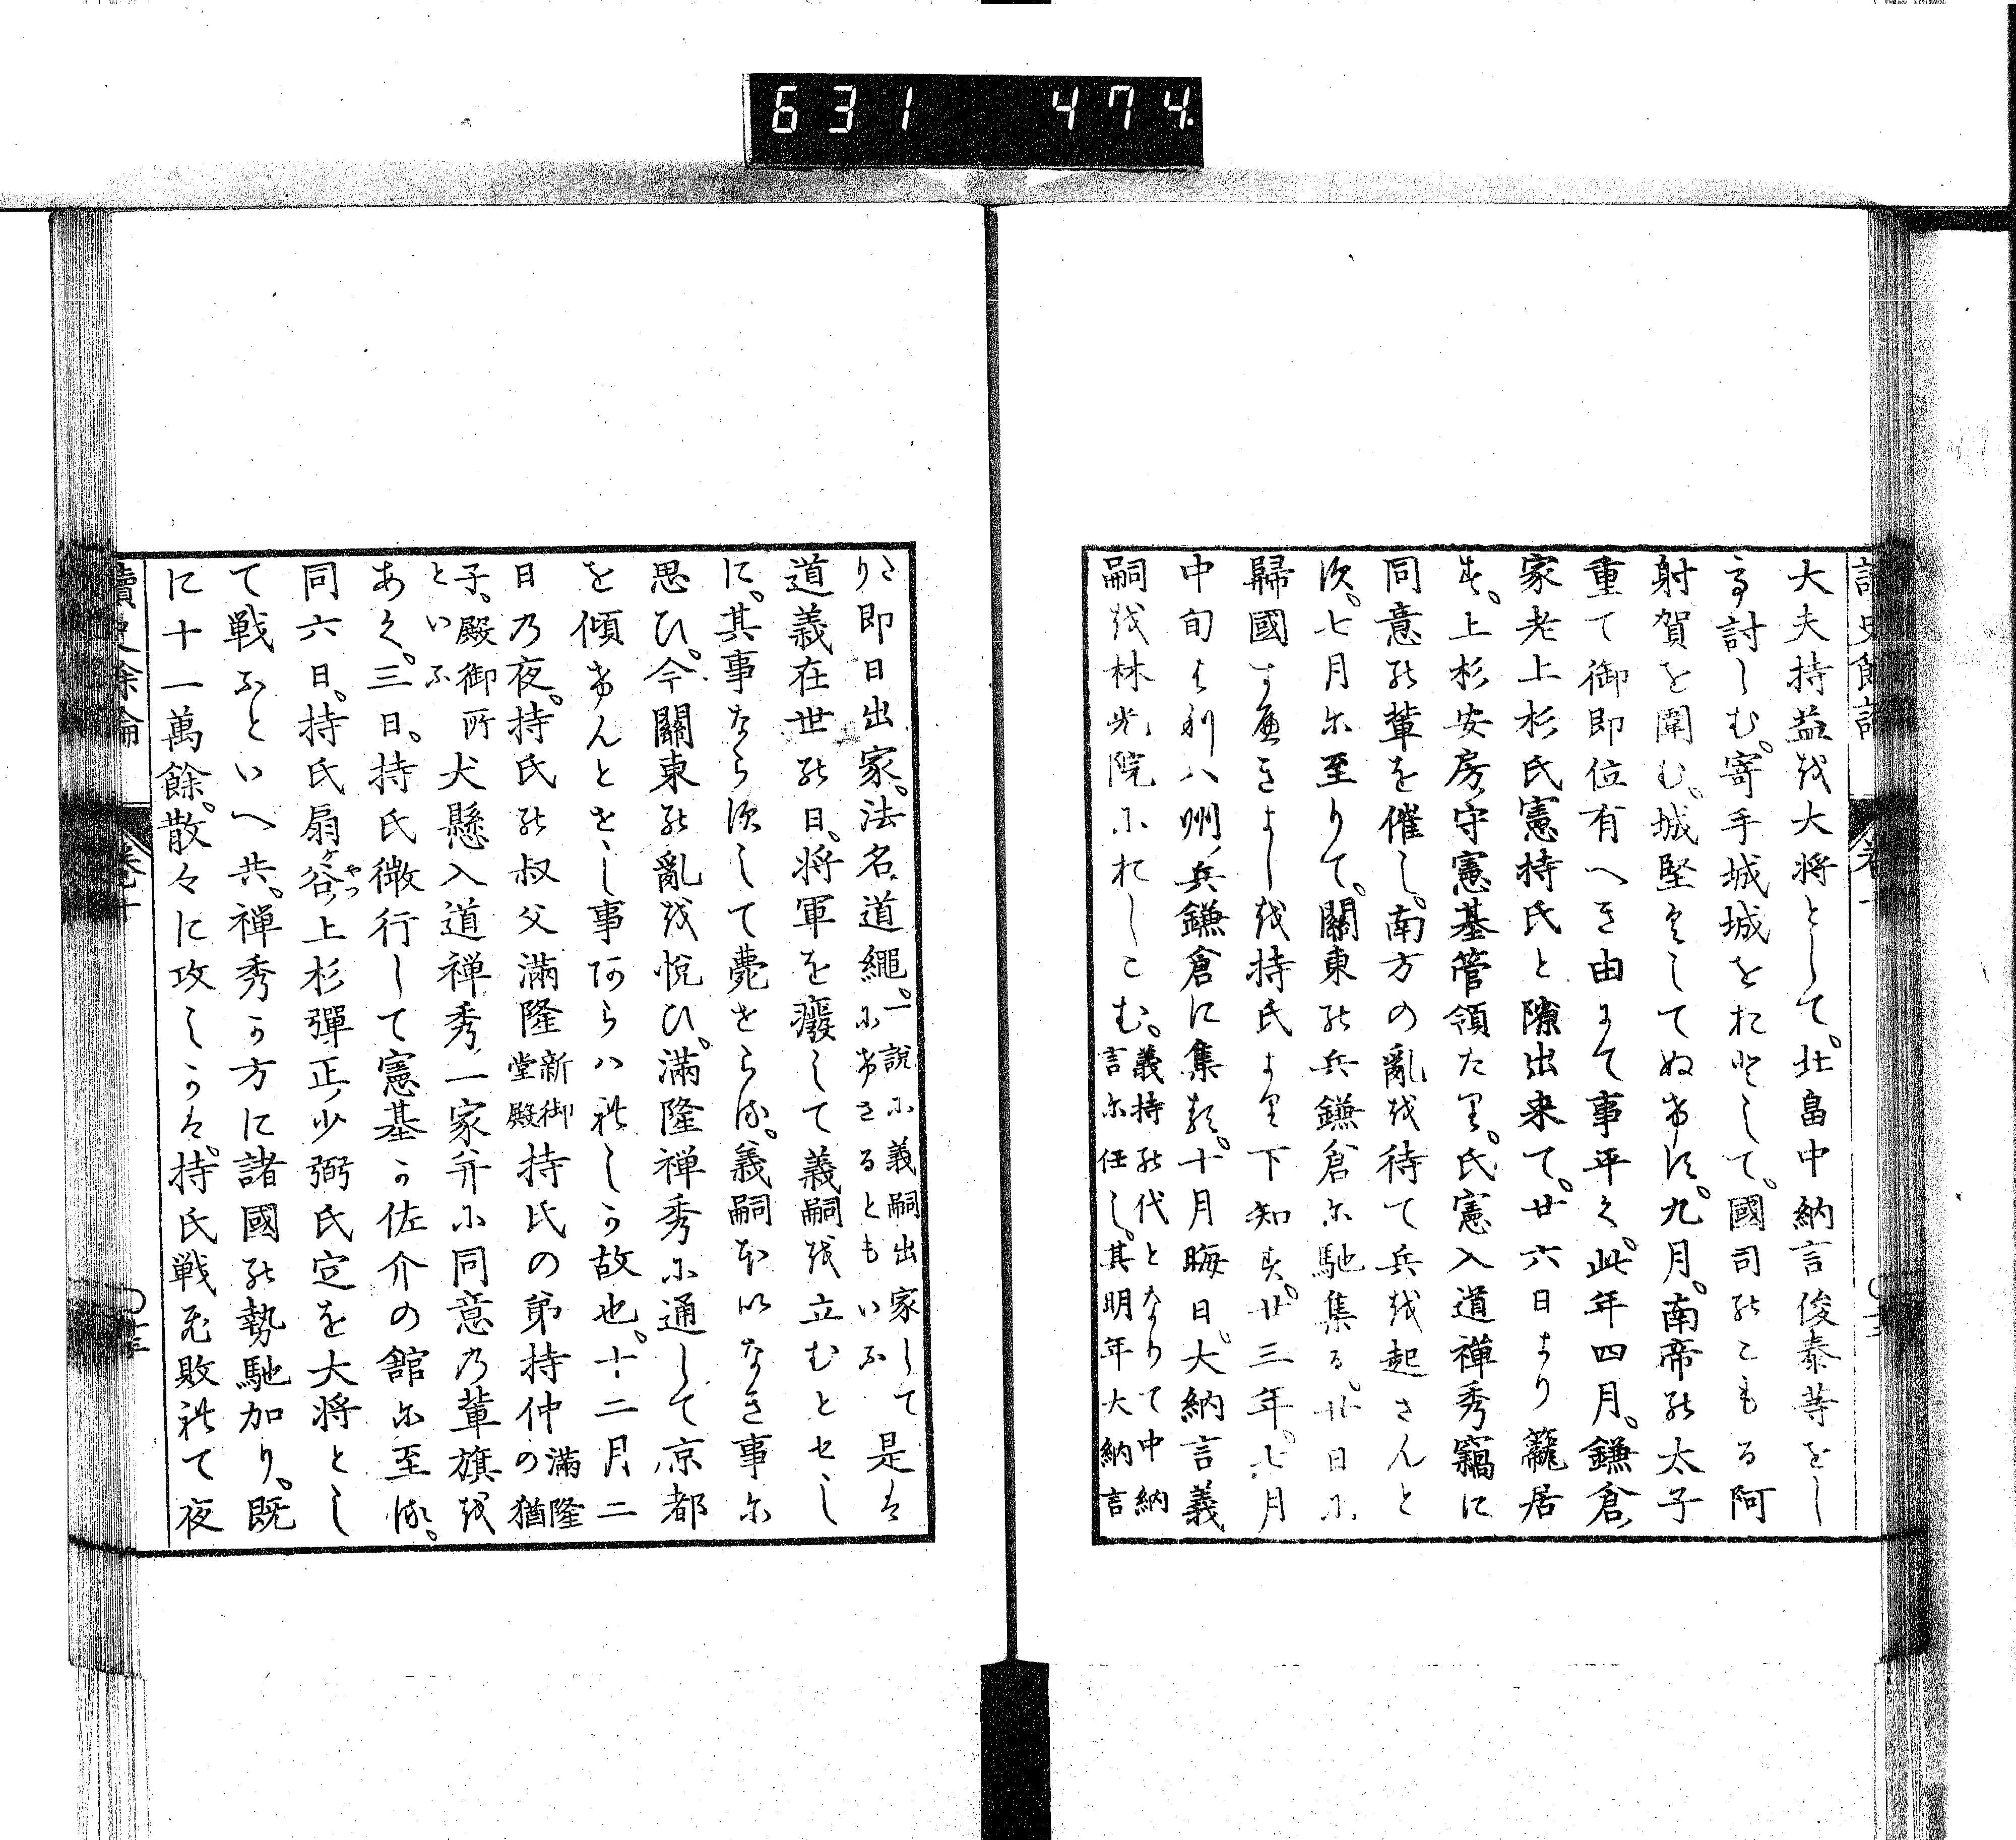 631 474
大夫持益を大将として。北畠中納言俊泰等をし
て討しむ。寄手城城をおとして。國司のこもる阿
射賀を圍む。城堅くしてぬけず。九月。南帝の太子
重て御即位有へき由にて事平く。此年四月。鎌倉ノ
家老上杉氏憲持氏と隙出来て。廿六日より籠居
す。上杉安房ノ守憲基管領たり。氏憲入道禅秀竊に
同意の輩を催し。南方の亂を待て兵を起さんと
す。七月に至りて。關東の兵鎌倉に馳集る。廿日に
歸國すへきよしを持氏より下知す。廿三年。七月
中旬より八州ノ兵鎌倉に集る。十月晦日。大納言義
嗣を林光院におしこむ。義持の代となりて中納
言に任し。其明年大納言
り即日出家。法名道繩。一説に義嗣出家して
にけさるともいふ 是は
道義在世の日。将軍を癈して義嗣を立むとせし
に。其事ならすして薨せらる。義嗣ほいなき事に
思ひ。今關東の亂を悦ひ。滿隆禅秀に通して京都
を傾けんとせし事あらハれしか故也。十二月二
日の夜。持氏の叔父滿隆新御
堂殿持氏の弟持仲滿隆
の猶
子。殿御所
といふ犬懸入道禅秀一家并に同意の輩旗を
あく。三日。持氏微行して憲基か佐介の舘に至る。
同六日。持氏扇ケ谷やつノ上杉彈正ノ少弼氏定を大将とし
て戦ふといへ共。禅秀か方に諸國の勢馳加り。既
に十一萬餘。散々に攻しかは。持氏戦敗れて夜
讀史餘論